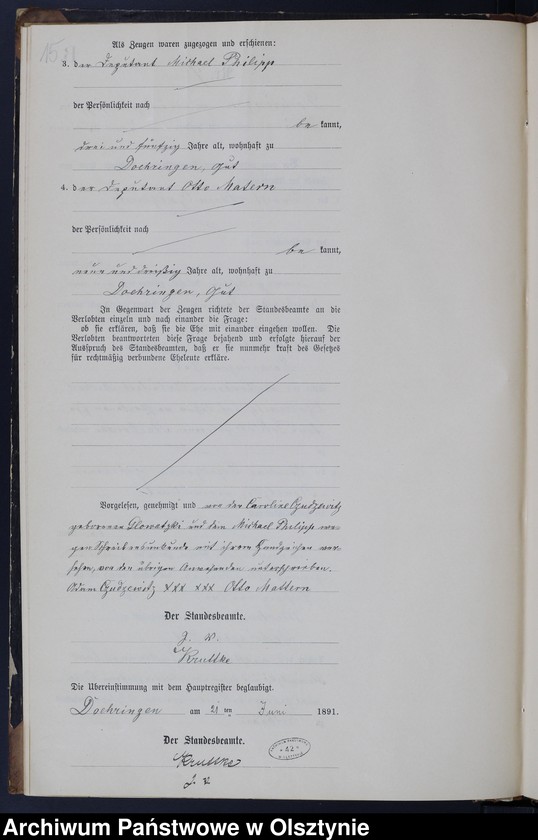 Als Zeugen waren zugezogen und erschienen:
3. der Deputant Michael Philipp
der Persönlichkeit nach
be kannt,
drei und fünfzig Jahre alt, wohnhaft zu
Doehringen, Gut
4. der Deputant Otto Matern
der Persönlichkeit nach
be kannt,
neun und dreißig Jahre alt, wohnhaft zu
Doehringen, Gut
In Gegenwart der Zeugen richtete der Standesbeamte an die
Verlobten einzeln und nach einander die Frage:
ob sie erklären, daß sie die Ehe mit einander eingehen wollen. Die
Verlobten beantworteten diese Frage bejahend und erfolgte hierauf der
Ausspruch des Standesbeamten, daß er sie nunmehr kraft des Gesetzes
für rechtmäßig verbundene Eheleute erkläre.
Vorgelesen, genehmigt und von der Caroline Czudzewitz
geborenen Glowatzki und dem Michael Philipp we-
gen Schreibensunkunde mit ihrem Handzeichen ver-
sehen, von den übrigen Anwesenden unterschrieben.
Adam Czudzewitz XXX XXX Otto Mattern
Der Standesbeamte.
J. V.
Kruttke
Die Übereinstimmung mit dem Hauptregister beglaubigt.
Doehringen am 21 ten Juni 1891.
Der Standesbeamte.
Kruttke
J. V.
Archiwum Państwowe w Olsztynie